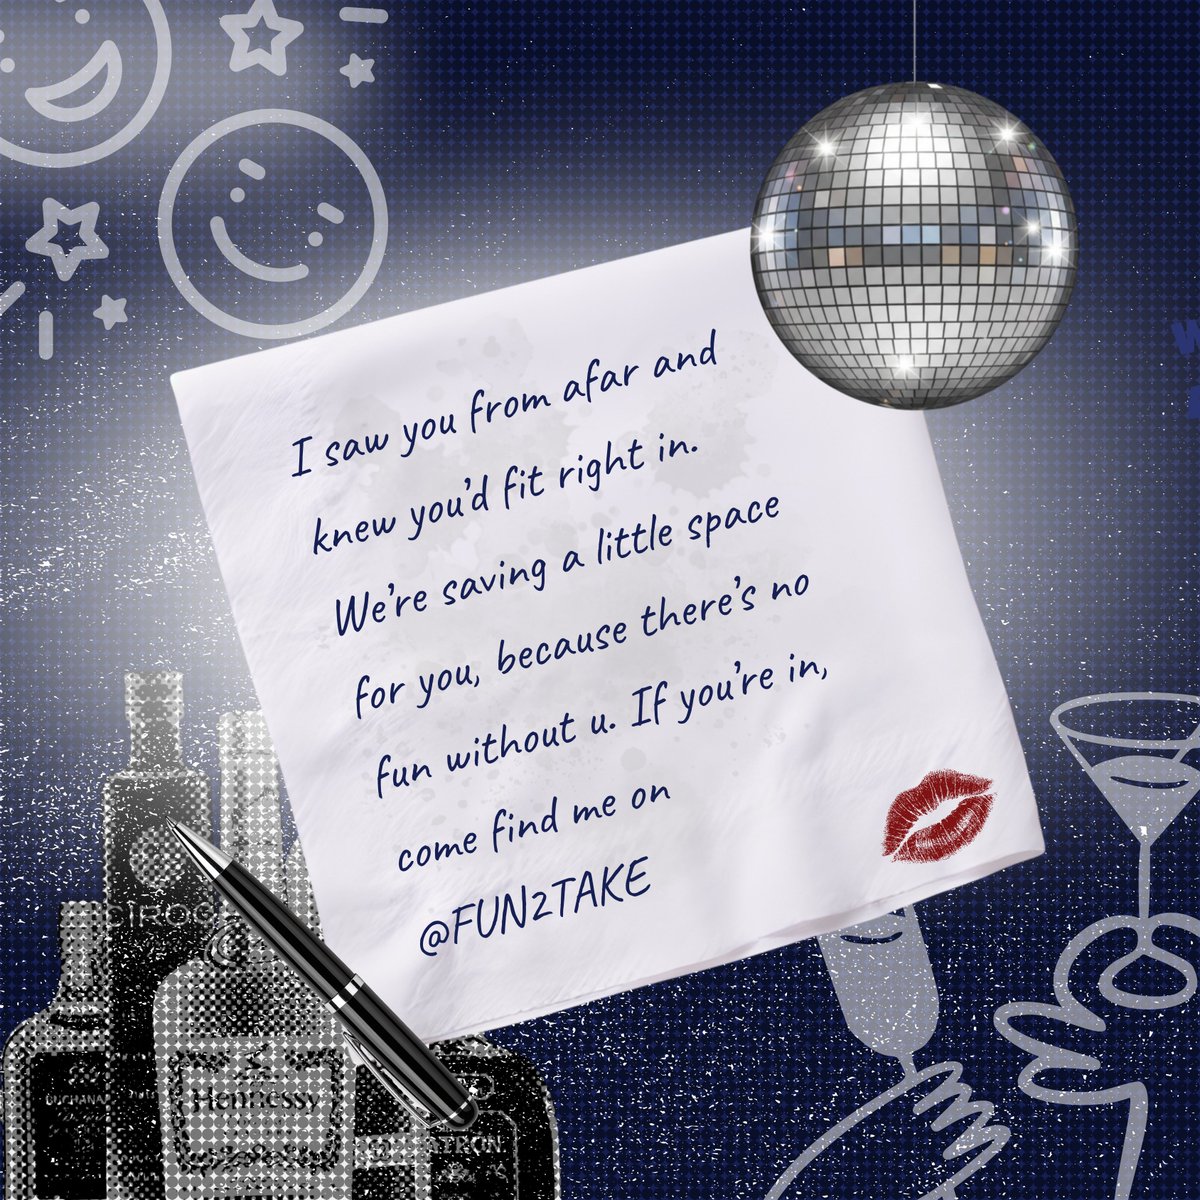 I saw you from afar and
knew you'd fit right in.
We're saving a little space
for you, because there's no
fun without u. If you're in,
come find me on
@FUN2TAKE
CIROC
BUCHANA
Hennessy
TRON